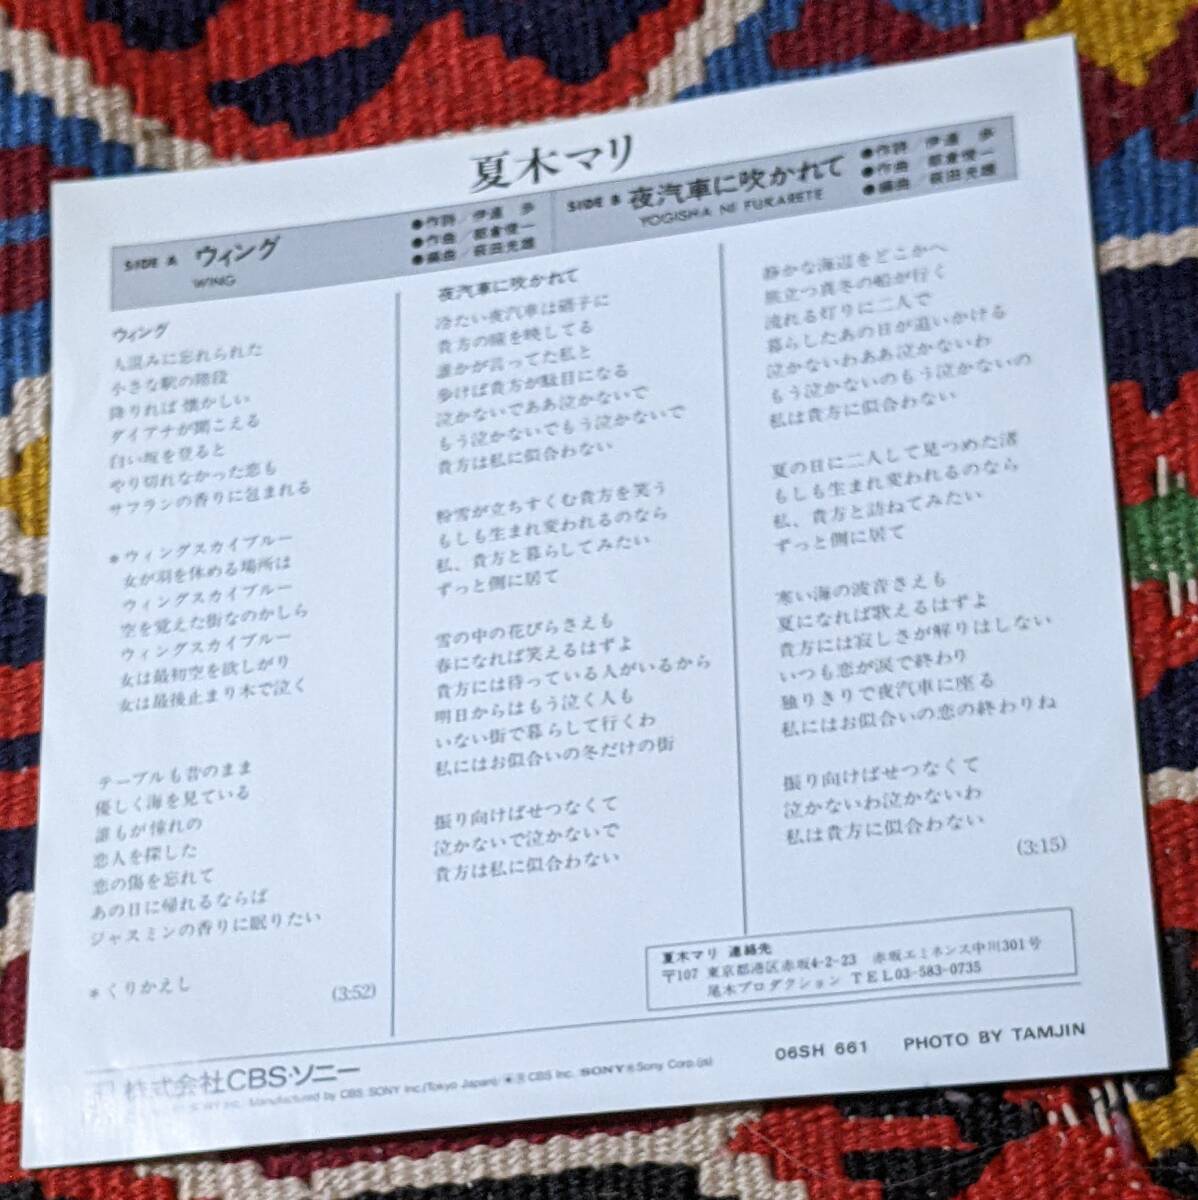 夏木マリ
SIDE A ウィング
WING
●作詩／伊達 歩
●作曲／都倉俊一
●編曲／萩田光雄
SIDE B 夜汽車に吹かれて
YOGISHA NI FUKARETE
●作詩／伊達 歩
●作曲／都倉俊一
●編曲／萩田光雄
ウィング
人混みに忘れられた
小さな駅の階段
降りれば 懐かしい
ダイアナが聞こえる
白い坂を登ると
やり切れなかった恋も
サフランの香りに包まれる
＊ウィングスカイブルー
女が羽を休める場所は
ウィングスカイブルー
空を覚えた街なのかしら
ウィングスカイブルー
女は最初空を欲しがり
女は最後止まり木で泣く
テーブルも昔のまま
優しく海を見ている
誰もが憧れの
恋人を探した
恋の傷を忘れて
あの日に帰れるならば
ジャスミンの香りに眠りたい
＊くりかえし
(3:52)
夜汽車に吹かれて
冷たい夜汽車は硝子に
貴方の瞳を映してる
誰かが言ってた私と
歩けば貴方が駄目になる
泣かないでああ泣かないで
もう泣かないでもう泣かないで
貴方は私に似合わない
粉雪が立ちすくむ貴方を笑う
もしも生まれ変われるのなら
私、貴方と暮らしてみたい
ずっと側に居て
雪の中の花びらさえも
春になれば笑えるはずよ
貴方には待っている人がいるから
明日からはもう泣く人も
いない街で暮らして行くわ
私にはお似合いの冬だけの街
振り向けばせつなくて
泣かないで泣かないで
貴方は私に似合わない
静かな海辺をどこかへ
旅立つ真冬の船が行く
流れる灯りに二人で
暮らしたあの日が追いかける
泣かないわああ泣かないわ
もう泣かないのもう泣かないの
私は貴方に似合わない
夏の日に二人して見つめた渚
もしも生まれ変われるのなら
私、貴方と訪ねてみたい
ずっと側に居て
寒い海の波音さえも
夏になれば歌えるはずよ
貴方には寂しさが解りはしない
いつも恋が涙で終わり
独りきりで夜汽車に座る
私にはお似合いの恋の終わりね
振り向けばせつなくて
泣かないわ泣かないわ
私は貴方に似合わない
(3:15)
夏木マリ 連絡先
〒107 東京都港区赤坂4-2-23 赤坂エミネンス中川301号
尾木プロダクション TEL03-583-0735
株式会社CBS・ソニー
Manufactured by CBS SONY Inc.(Tokyo Japan)/ CBS Inc. SONY® Sony Corp.
06SH 661
PHOTO BY TAMJIN